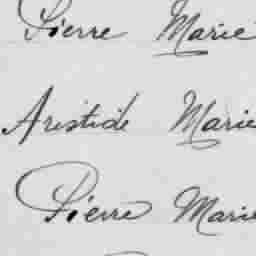 Pierre Marie
Aristide Marie
Pierre Marie